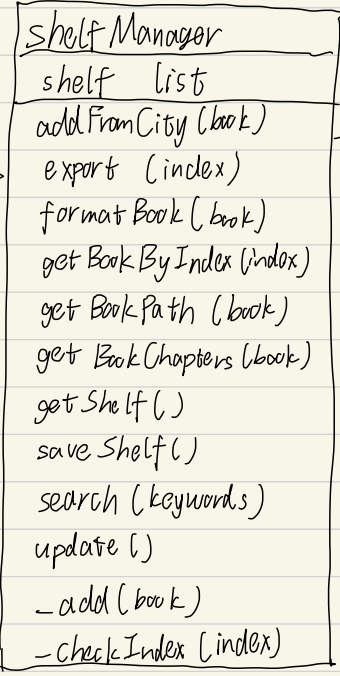 shelfManager
shelf list
addFromCity (book)
export (index)
formatBook (book)
getBookByIndex (index)
getBookPath (book)
getBookChapters (book)
getShelf ()
saveShelf ()
search (keywords)
update ()
_add (book)
_checkIndex (index)